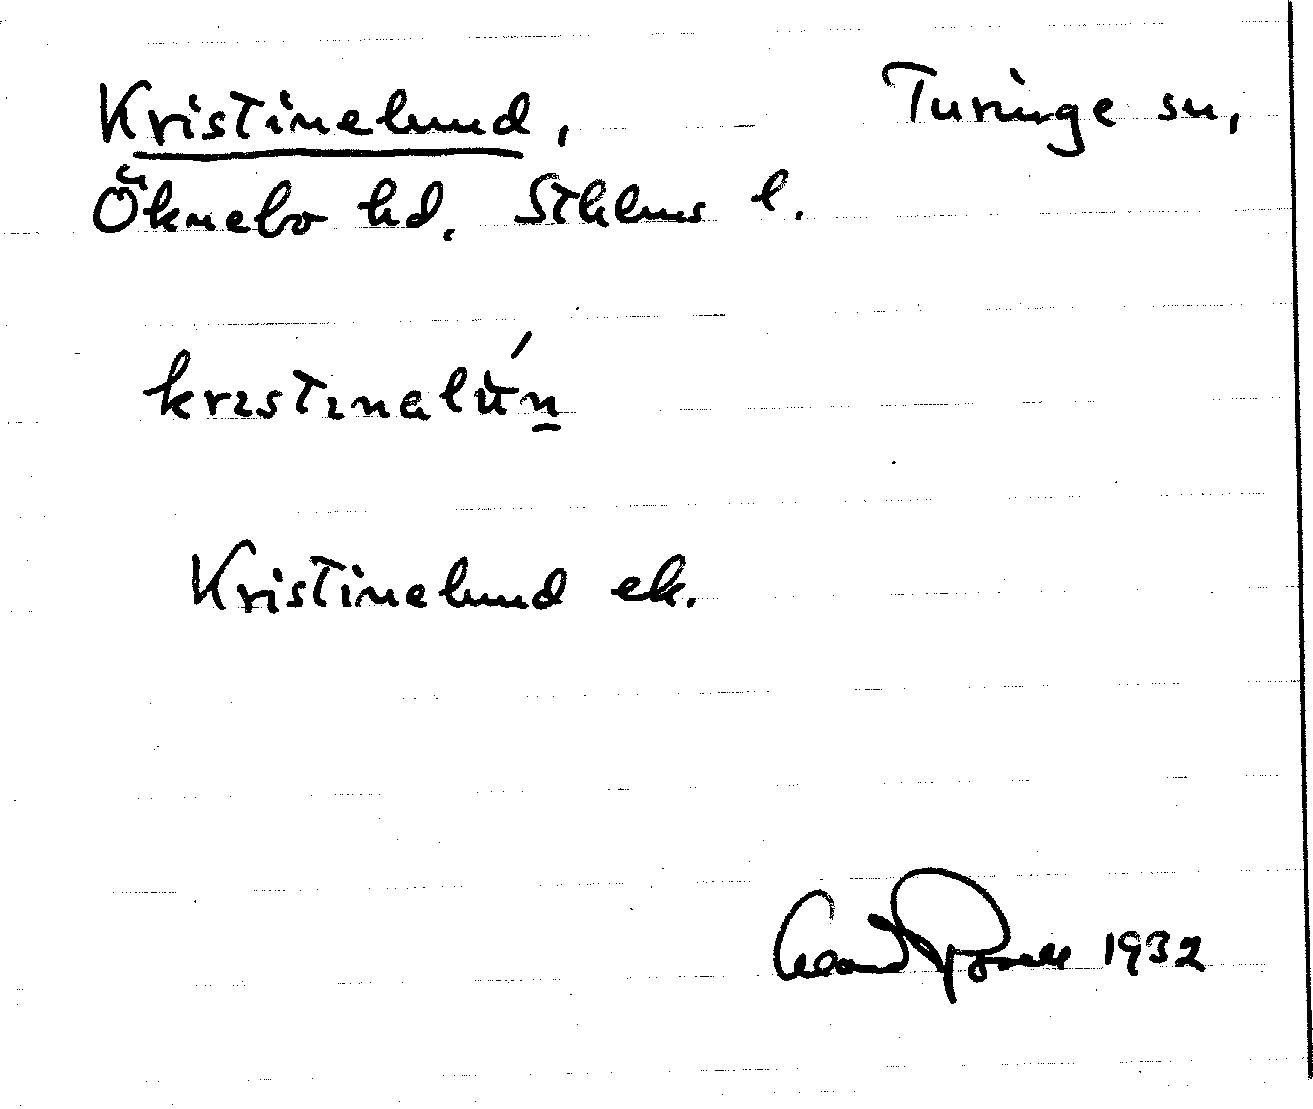 Kristinelund, Turinge sn,
Öknebo hd. Sthlms l.
krɪstɪnalún̲
Kristinelund ek.
1932